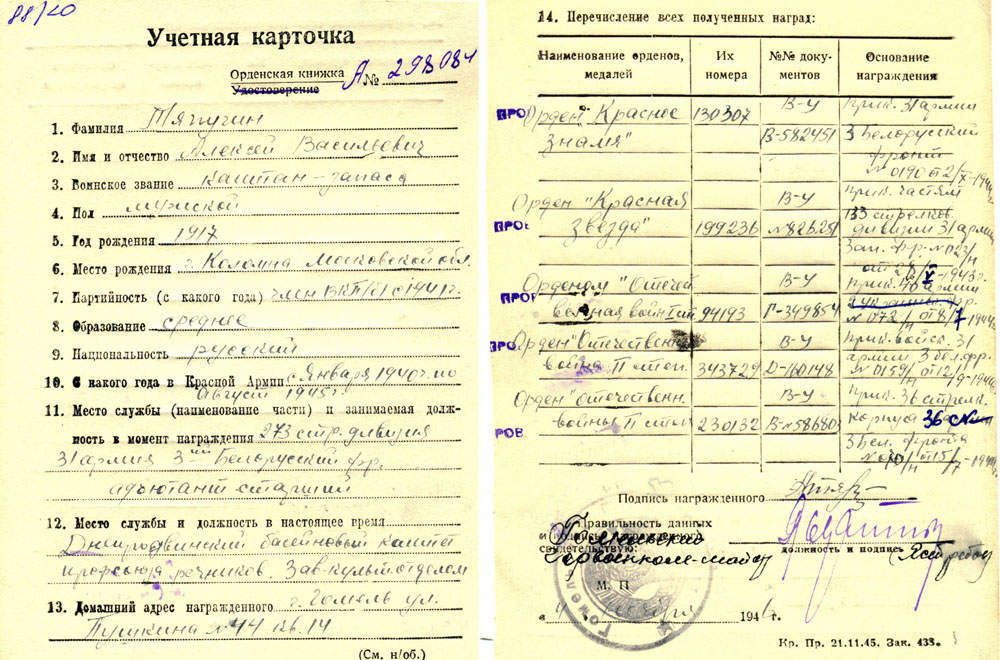 88/20
Учетная карточка
Орденская книжка А № 298084
Удостоверение
1. Фамилия Тяпугин
2. Имя и отчество Алексей Васильевич
3. Воинское звание капитан-запаса
4. Пол мужской
5. Год рождения 1917
6. Место рождения г. Коломна Московской обл.
7. Партийность (с какого года) член ВКП(б) с 1941 г.
8. Образование среднее
9. Национальность русский
10. С какого года в Красной Армии с Января 1940 г. по
Август 1945 г.
11. Место службы (наименование части) и занимаемая долж-
ность в момент награждения 273 стр. дивизия
31 армия 3ий Белорусский фр.
адъютант старший
12. Место службы и должность в настоящее время
Днепродвинский басейновый камитет
профсоюза речников. Зав-культотделом
13. Домашний адрес награжденного г. Гомель ул.
Пушкина № 44 кв. 14
(См. н/об.)
14. Перечисление всех полученных наград:
Наименование орденов, медалей Их номера №№ доку-ментов Основание награждения
ПРО Орден "Красное 130307 В-У прик. 31 армии
знамя" В-582451 3 Белорусский
фронт
№ 0190 от 2/X-194
Орден "Красная В-У прик. частям
ПРОВ звезда" 199236 133 стрелков.
дивизии 31 армии
Зап. фр.
Орденом "Отечей В-У прик.
ПРОВ венная войн I ст 94193 Г-349854 № 072/н от 8/7-194
ПРО Орден "Отечественн В-У прик. войск. 31
война II степ. 343729 армии 3 бел. фр.
№ 0159/н от 12/
Орден "отечественн. В-У прик. 36 стрелк.
РОВ войны II степ 230132 корпуса 36 ск
3 Бел. фронта
от 15/7-194
Подпись награжденного
Правильность данных
и подпись награжденного
свидетельствую:
Горвоенком-майор
должность и подпись
М. П.
Гомел
« 4 » ноября 1946 г.
Кр. Пр. 21.11.45. Зак. 438.